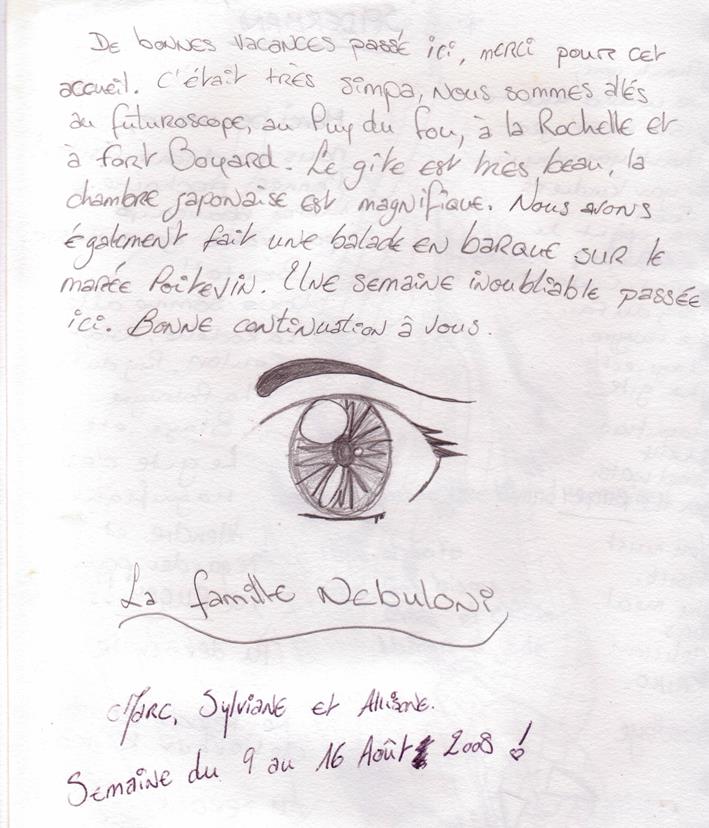 De bonnes vacances passé ici, merci pour cet
accueil. C'était très simpa, nous sommes allés
au futuroscope, au Puy du fou, à la Rochelle et
à fort Boyard. Le gîte est très beau, la
chambre japonaise est magnifique. Nous avons
également fait une balade en barque sur le
marée Poitevin. Une semaine inoubliable passée
ici. Bonne continuation à vous.
La famille Nebuloni
Marc, Sylviane et Allisone.
Semaine du 9 au 16 Août 2008 !